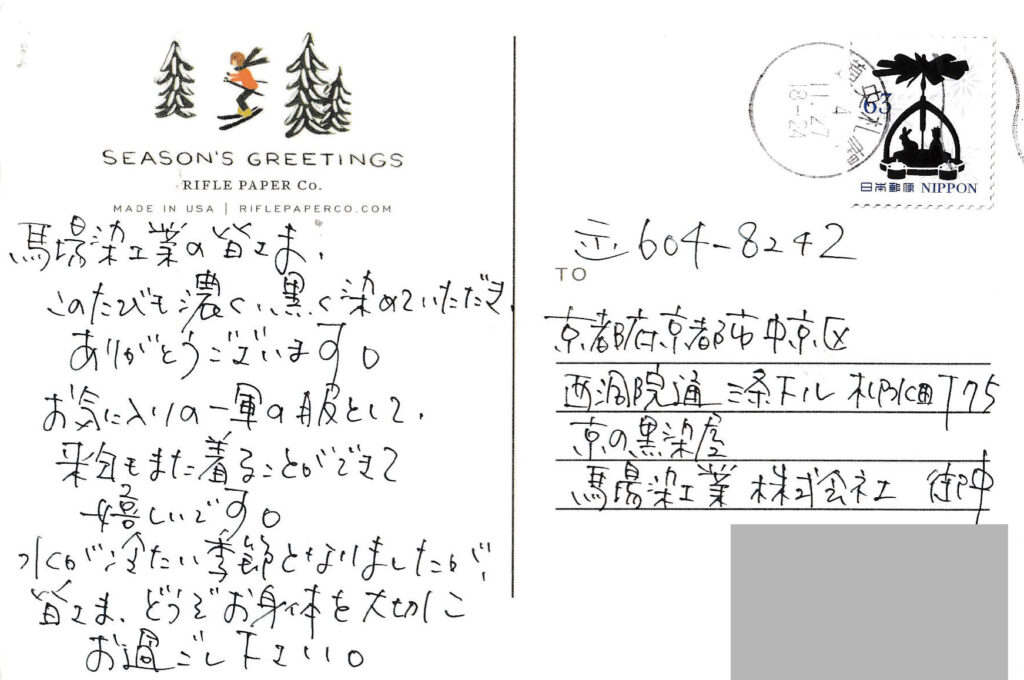 SEASON'S GREETINGS
RIFLE PAPER Co.
MADE IN USA | RIFLEPAPERCO.COM
馬場染工業の皆さま、
このたびも濃く、黒く染めていただき
ありがとうございます。
お気に入りの一軍の服として、
来年もまた着ることができて
嬉しいです。
水が冷たい季節となりましたが、
皆さま、どうぞお身体を大切に
お過ごし下さい。
63
日本郵便 NIPPON
4
11.27
18-24
〒604-8242
TO
京都府京都市中京区
西洞院通三条下ル柳水町75
京の黒染屋
馬場染工業 株式会社 御中